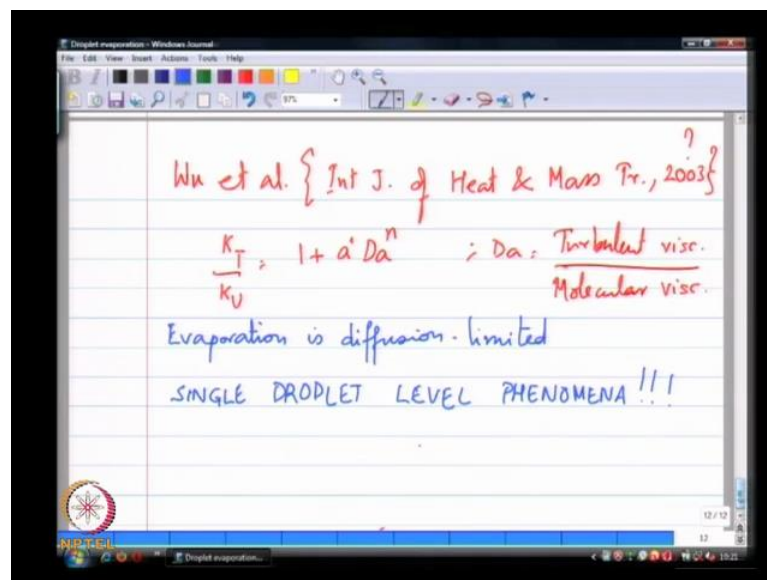 Droplet evaporation - Windows Journal
File Edit View Insert Actions Tools Help
B I
97%
?
Wu et al. { Int J. of Heat & Mass Tr., 2003}
K_T / K_U = 1 + a' Da^n ; Da = Turbulent visc. / Molecular visc.
Evaporation is diffusion-limited
SINGLE DROPLET LEVEL PHENOMENA!!!
12 / 12
12
NPTEL
Droplet evaporation...
10:21